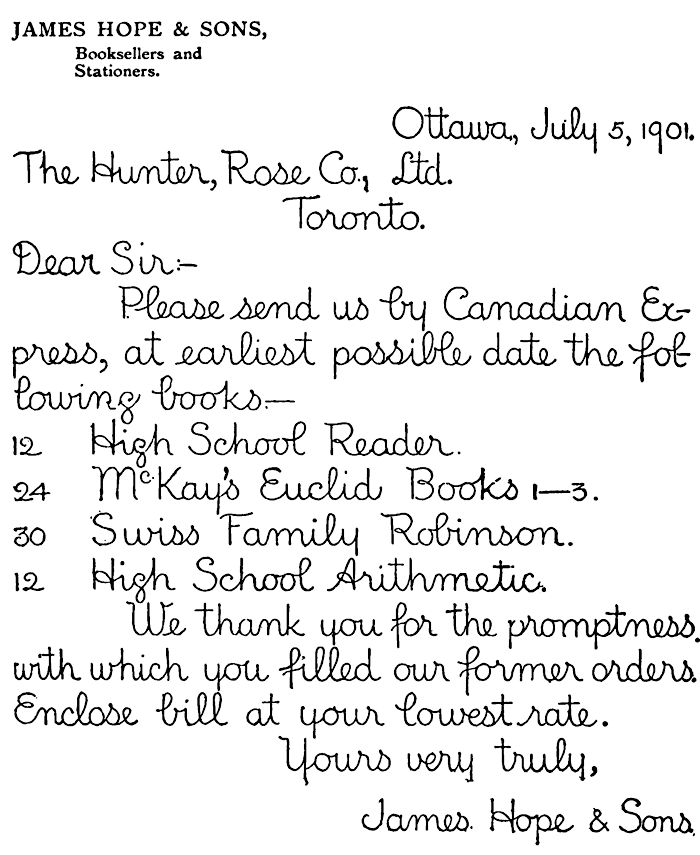 JAMES HOPE & SONS,
Booksellers and
Stationers.
Ottawa, July 5, 1901.
The Hunter, Rose Co., Ltd.
Toronto.
Dear Sir:-
Please send us by Canadian Ex-
press, at earliest possible date the fol-
lowing books:—
12 High School Reader.
24 McKay's Euclid Books 1—3.
30 Swiss Family Robinson.
12 High School Arithmetic.
We thank you for the promptness
with which you filled our former orders.
Enclose bill at your lowest rate.
Yours very truly,
James Hope & Sons.